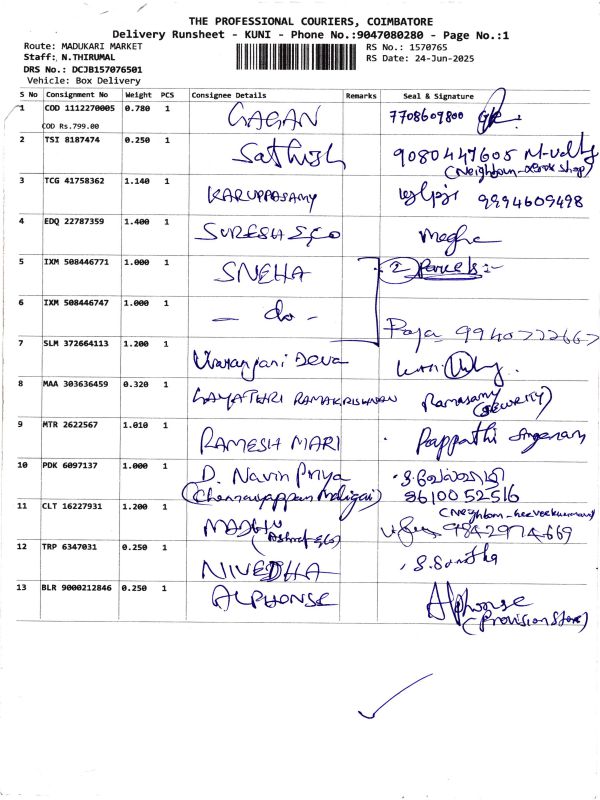 THE PROFESSIONAL COURIERS, COIMBATORE
Delivery Runsheet - KUNI - Phone No.:9047080280 - Page No.:1
Route: MADUKARI MARKET
RS No.: 1570765
Staff: N.THIRUMAL
RS Date: 24-Jun-2025
DRS No.: DCJB157076501
Vehicle: Box Delivery
S No Consignment No Weight PCS Consignee Details Remarks Seal & Signature
1 COD 1112270005 0.780 1 GAGAN 7708607800
COD Rs.799.00
2 TSI 8187474 0.250 1 Sathish 9080447605
(Neighbour - Xerox Shop)
3 TCG 41758362 1.140 1 KARUPPASAMY 9994609498
4 EDQ 22787359 1.400 1 SURESH S G O Megha
5 IXM 508446771 1.000 1 SNEHA 2 Parcels :-
6 IXM 508446747 1.000 1 - do - Raja 9940772667
7 SLM 372664113 1.200 1 Deva
8 MAA 303636459 0.320 1 GAYATHRI RAMAKRISHNAN Ramasamy
(SECURITY)
9 MTR 2622567 1.010 1 RAMESH MARI Pappathi
10 PDK 6097137 1.000 1 D. Navin Priya
(Chennaiyappan Maligai) 3610052516
11 CLT 16227931 1.200 1 MADHU 9842974669
12 TRP 6347031 0.250 1 NIVEDHA
13 BLR 9000212846 0.250 1 ALPHONSE Alphonse
(Provision Store)